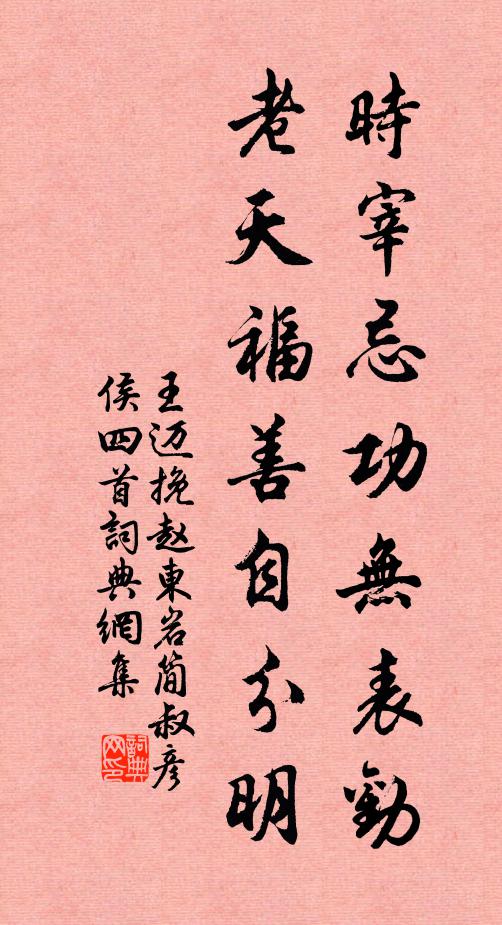 時宰忌功無表勸
老天福善自分明
王迈挽赵東岩簡叔彦
侯四首詞典網集
詞典网印